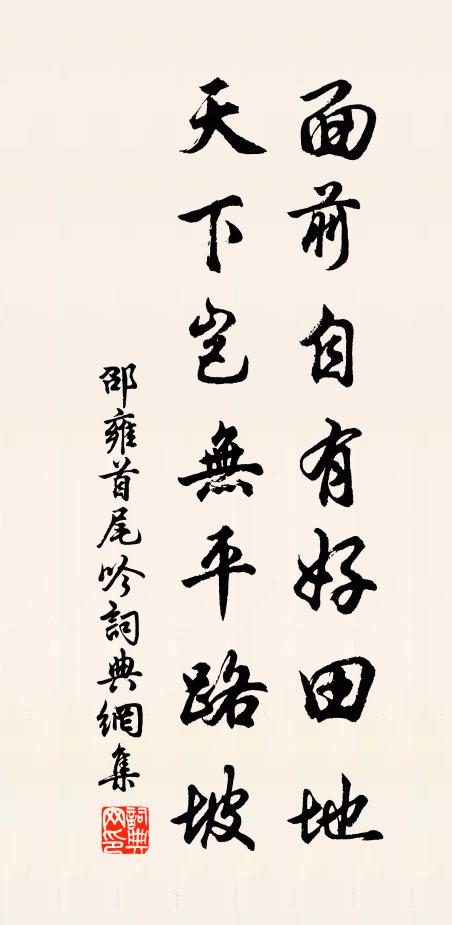 面前自有好田地
天下岂無平路坡
邵雍首尾吟詞典網集
詞典網印